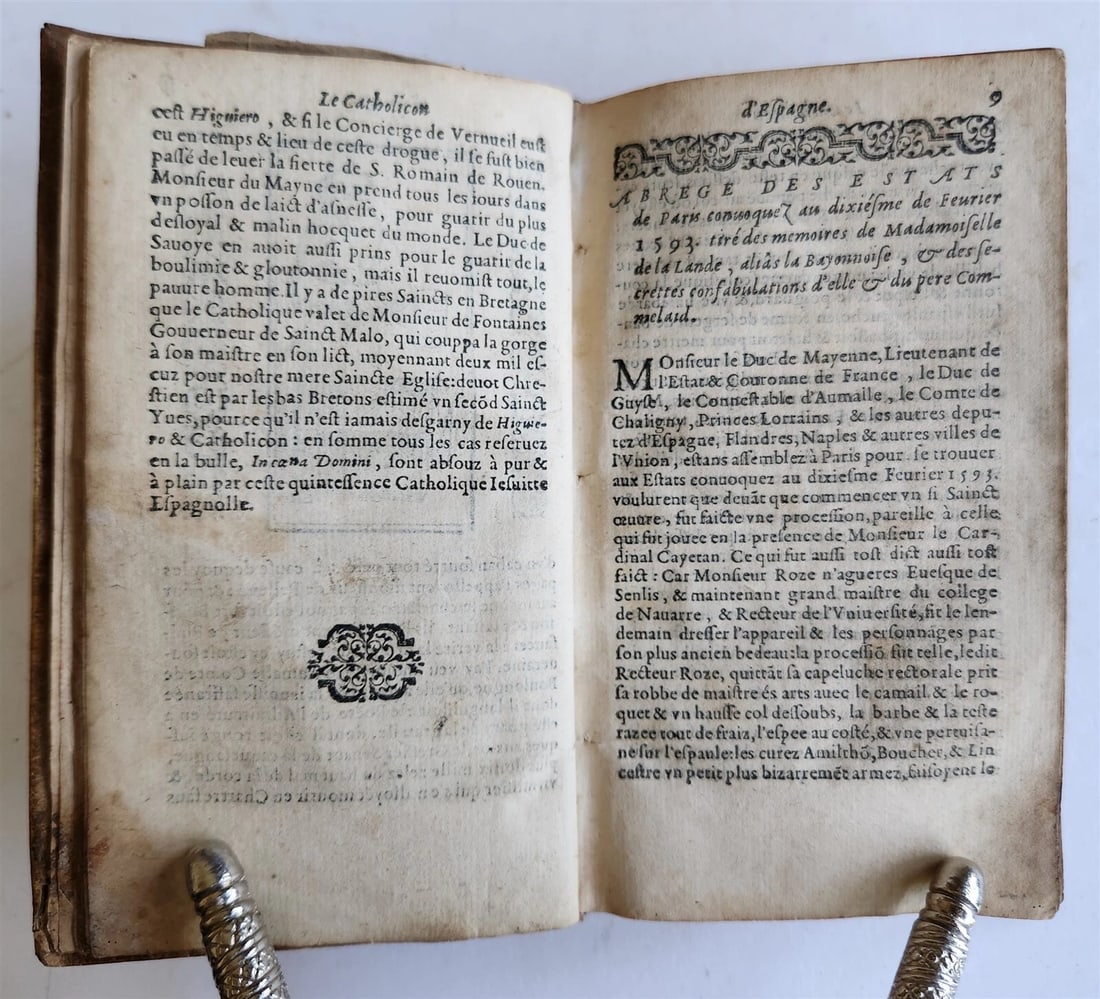 Le Catholicon
cest Higuiero, & si le Concierge de Vernueil eust
eu en temps & lieu de ceste drogue, il se fust bien
passé de leuer la fierte de S. Romain de Rouen.
Monsieur du Mayne en prend tous les iours dans
vn posson de laict d'asnesse, pour guarir du plus
desloyal & malin hocquet du monde. Le Duc de
Sauoye en auoit aussi prins pour le guarir de la
boulimie & gloutonnie, mais il reuomist tout, le
pauure homme. Il y a de pires Saincts en Bretagne
que le Catholique valet de Monsieur de Fontaines
Gouuerneur de Sainct Malo, qui couppa la gorge
à son maistre en son lict, moyennant deux mil es-
cuz pour nostre mere Saincte Eglise: deuot Chre-
stien est par les bas Bretons estimé vn secõd Sainct
Yues, pource qu'il n'est iamais desgarny de Higuie-
ro & Catholicon : en somme tous les cas reseruez
en la bulle, In cœna Domini, sont absouz à pur &
à plain par ceste quintessence Catholique Iesuitte
Espagnolle.
d'Espagne. 9
ABREGE DES ESTATS
de Paris conuoquez au dixiésme de Feurier
1593. tiré des memoires de Madamoiselle
de la Lande, aliàs la Bayonnoise, & des se-
crettes confabulations d'elle & du pere Com-
melaid.
MOnsieur le Duc de Mayenne, Lieutenant de
l'Estat & Couronne de France, le Duc de
Guyse, le Connestable d'Aumalle, le Comte de
Chaligny, Princes Lorrains, & les autres depu-
tez d'Espagne, Flandres, Naples & autres villes de
l'Vnion, estans assemblez à Paris pour se trouuer
aux Estats conuoquez au dixiesme Feurier 1593.
voulurent que deuãt que commencer vn si Sainct
œuure, fut faicte vne procession, pareille à celle
qui fut jouee en la presence de Monsieur le Car-
dinal Cayetan. Ce qui fut aussi tost dict aussi tost
faict : Car Monsieur Roze n'agueres Euesque de
Senlis, & maintenant grand maistre du college
de Nauarre, & Recteur de l'Vniuersité, fit le len-
demain dresser l'appareil & les personnages par
son plus ancien bedeau: la processiõ fut telle, ledit
Recteur Roze, quittãt sa capeluche rectorale prit
sa robbe de maistre és arts auec le camail & le ro-
quet & vn hausse col dessoubs, la barbe & la teste
razee tout de fraiz, l'espee au costé, & vne pertuisa-
ne sur l'espaule: les curez Amilthõ, Boucher, & Lin
cestre vn petit plus bizarremẽt armez, faisoyent le